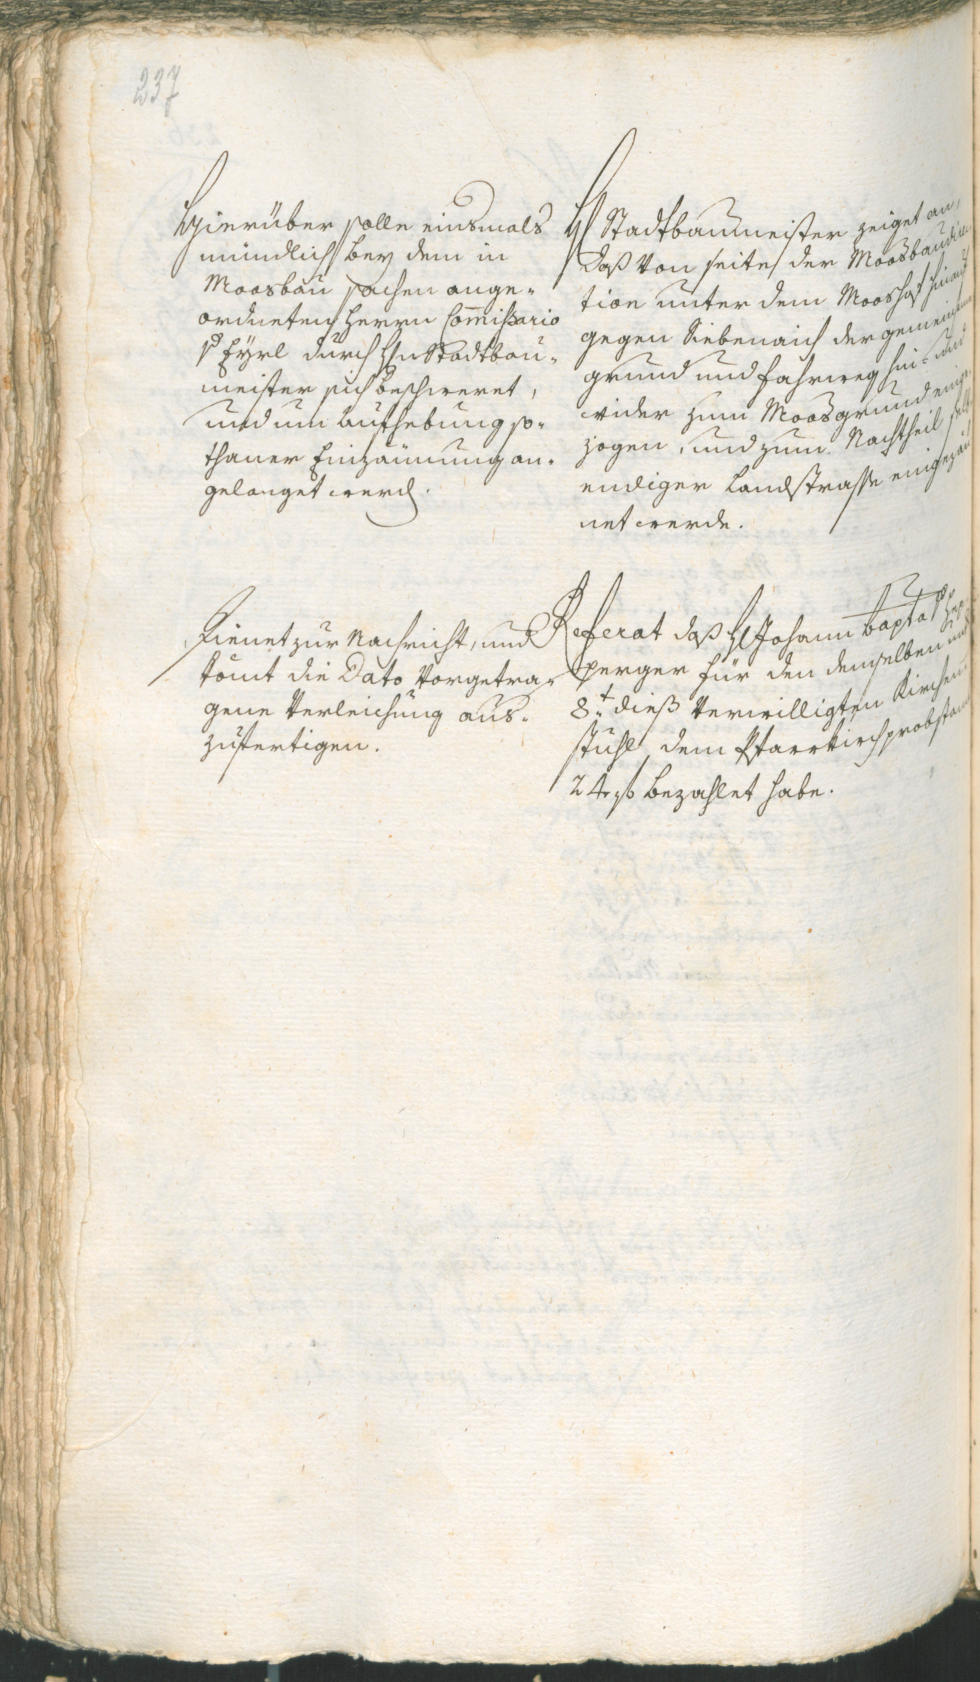 237
Hierüber solle einsmals
mündlich bey dem in
Moosbau sachen ange-
ordneten Herrn Com̄ißario
v Eyrl durch Hn Stadtbau-
meister sich beschweret,
und um Aufhebung so-
thaner Einzäunung an-
gelanget werd.
H Stadtbaumeister zeiget an,
daß von seiten der Moosbaudirec
tion unter dem Mooshof hinauf
gegen Siebenaich der gemeinschaft
grund und fahrweg hin- und
wider zum Moosgrund einge-
zogen, und zum Nachtheil
endiger Landstrasse eingezäu
net werde.
Dienet zur Nachricht, und
kom̄t die Dato vorgetra-
gene Verleichung aus-
zufertigen.
Referat daß H Johann bapta
perger für den demselben
8t dieß verwilligten Kirchen
stuhl dem Pfarrkirchprobstamt
24 f bezahlet habe.